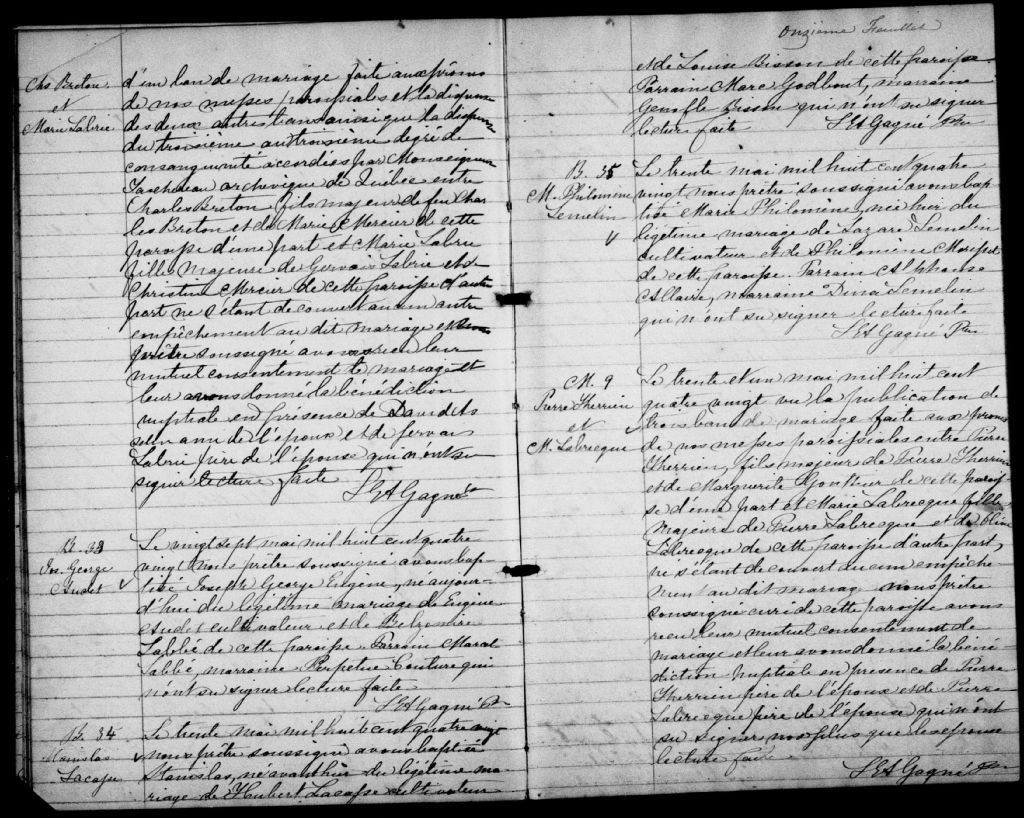 Chs Breton
et
Marie Labrie
d'un ban de mariage faite aux prônes
de nos messes paroissiales et la dispense
des deux autres bans ainsi que la dispense
du troisième au troisième dégré de
consanguinité accordées par Monseigneur
Taschereau archevêque de Québec entre
Charles Breton fils majeur de feu Char
les Breton et de Marie Mercier de cette
paroisse d'une part et Marie Labrie
fille majeure de Gervais Labrie et de
Christine Mercier de cette paroisse d'autre
part ne s'étant découvert aucun autre
empêchement au dit mariage et
prêtre soussigné avons reçu leur
mutuel consentement de mariage et
leur avons donné la bénédiction
nuptiale en présence de
ami de l'époux et de Gervais
Labrie père de l'épouse qui n'ont su
signer lecture faite
LEA Gagné
B. 33
Jos. George
Audet
Le vingt sept mai mil huit cent quatre
vingt nous prêtre soussigné avons bap
tisé Joseph George Eugène, né aujour-
d'hui du légitime mariage de Eugène
Audet cultivateur et de
Labbé de cette paroisse Parrain Marcel
Labbé, marraine Perpetue Couture qui
n'ont su signer lecture faite
LEA Gagné Ptr
B. 34
Stanislas
Lacasse
Le trente mai mil huit cent quatre vingt
nous prêtre soussigné avons baptisé
Stanislas, né avant hier du légitime ma-
riage de Hubert Lacasse cultivateur
Onzième Feuillet
et de Louise Bisson de cette paroisse
Parrain Marc Godbout, marraine
Genofle Bisson qui n'ont su signer
lecture faite LEA Gagné Ptre
B. 35
M. Philomène
Lemelin
Le trente mai mil huit cent quatre
vingt nous prêtre soussigné avons bap
tisé Marie Philomène, née hier du
légitime mariage de Lazare Lemelin
cultivateur et de Philomène
de cette paroisse. Parrain Alphonse
Allaire, marraine Dina Lemelin
qui n'ont su signer lecture faite
LEA Gagné Ptre
M. 9
Pierre Therrien
et
M. Labrecque
Le trente et un mai mil huit cent
quatre vingt vu la publication de
trois bans de mariage faite aux prônes
de nos messes paroissiales entre Pierre
Therrien, fils majeur de Pierre Therrien
et de Marguerite Gontier de cette parois
se d'une part et Marie Labrecque fille
majeure de Pierre Labrecque et de
Labrecque de cette paroisse d'autre part,
ne s'étant découvert aucun empêche
ment au dit mariage nous prêtre
soussigné curé de cette paroisse avons
reçu leur mutuel consentement de
mariage et leur avons donné la béné
diction nuptiale en présence de Pierre
Therrien père de l'époux et de Pierre
Labrecque père de l'épouse qui n'ont
su signer non plus que les époux
lecture faite
LEA Gagné Ptre